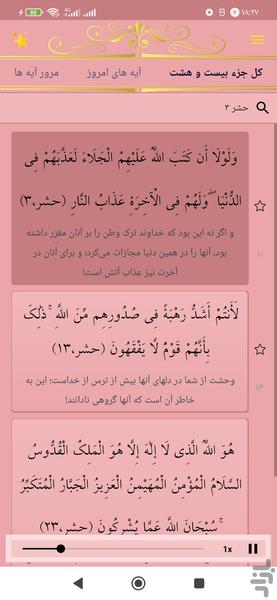 ۱۸:۲۷
کل جزء بیست و هشت
آیه های امروز
مرور آیه ها
حشر ۳
وَلَوْلَا أَن كَتَبَ اللَّهُ عَلَيْهِمُ الْجَلَاءَ لَعَذَّبَهُمْ فِي
الدُّنْيَا ۖ وَلَهُمْ فِي الْآخِرَةِ عَذَابُ النَّارِ (حشر،۳)
و اگر نه این بود که خداوند ترک وطن را بر آنان مقرّر داشته
بود، آنها را در همین دنیا مجازات می‌کرد؛ و برای آنان در
آخرت نیز عذاب آتش است!
لَأَنتُمْ أَشَدُّ رَهْبَةً فِي صُدُورِهِم مِّنَ اللَّهِ ۚ ذَٰلِكَ
بِأَنَّهُمْ قَوْمٌ لَّا يَفْقَهُونَ (حشر،۱۳)
وحشت از شما در دلهای آنها بیش از ترس از خداست؛ این به
خاطر آن است که آنها گروهی نادانند!
هُوَ اللَّهُ الَّذِي لَا إِلَٰهَ إِلَّا هُوَ الْمَلِكُ الْقُدُّوسُ
السَّلَامُ الْمُؤْمِنُ الْمُهَيْمِنُ الْعَزِيزُ الْجَبَّارُ الْمُتَكَبِّرُ
ۚ سُبْحَانَ اللَّهِ عَمَّا يُشْرِكُونَ (حشر،۲۳)
1x
بازار